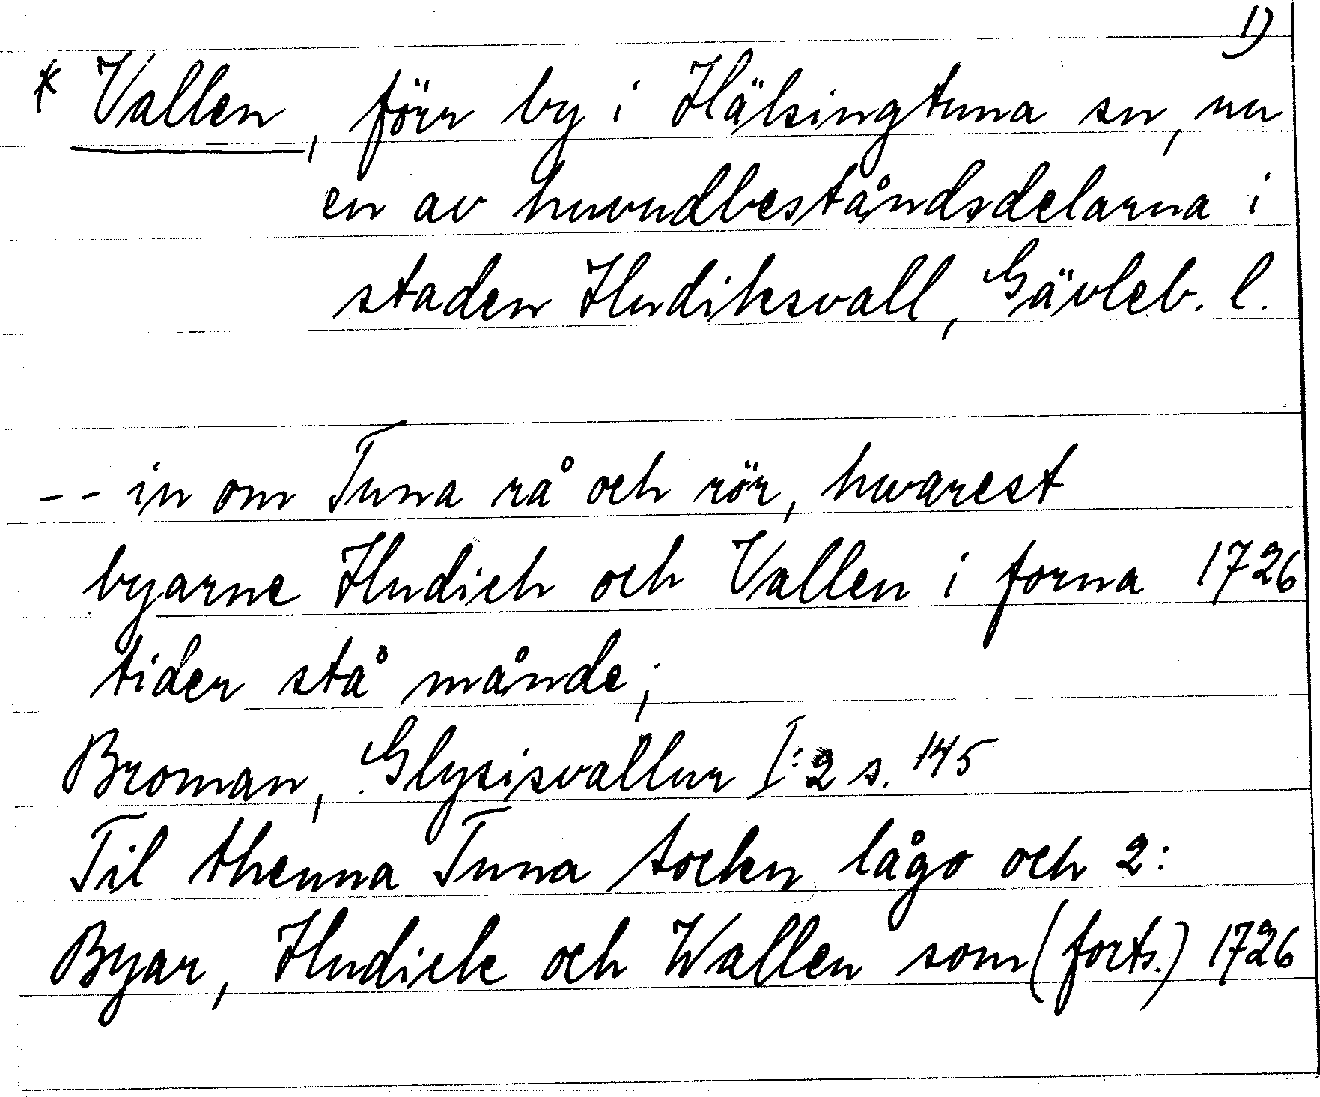 1)
* Vallen, förr by i Hälsingtuna sn, nu
en av huvudbeståndsdelarna i
staden Hudiksvall, Gävleb. l.
-- in om Tuna rå och rör, hwarest
byarne Hudich och Vallen i forna 1726
tider stå månde;
Broman, Glysisvallur I:2 s. 145
Til thenna Tuna Sockn lågo och 2:
Byar, Hudick och Wallen som (forts.) 1726